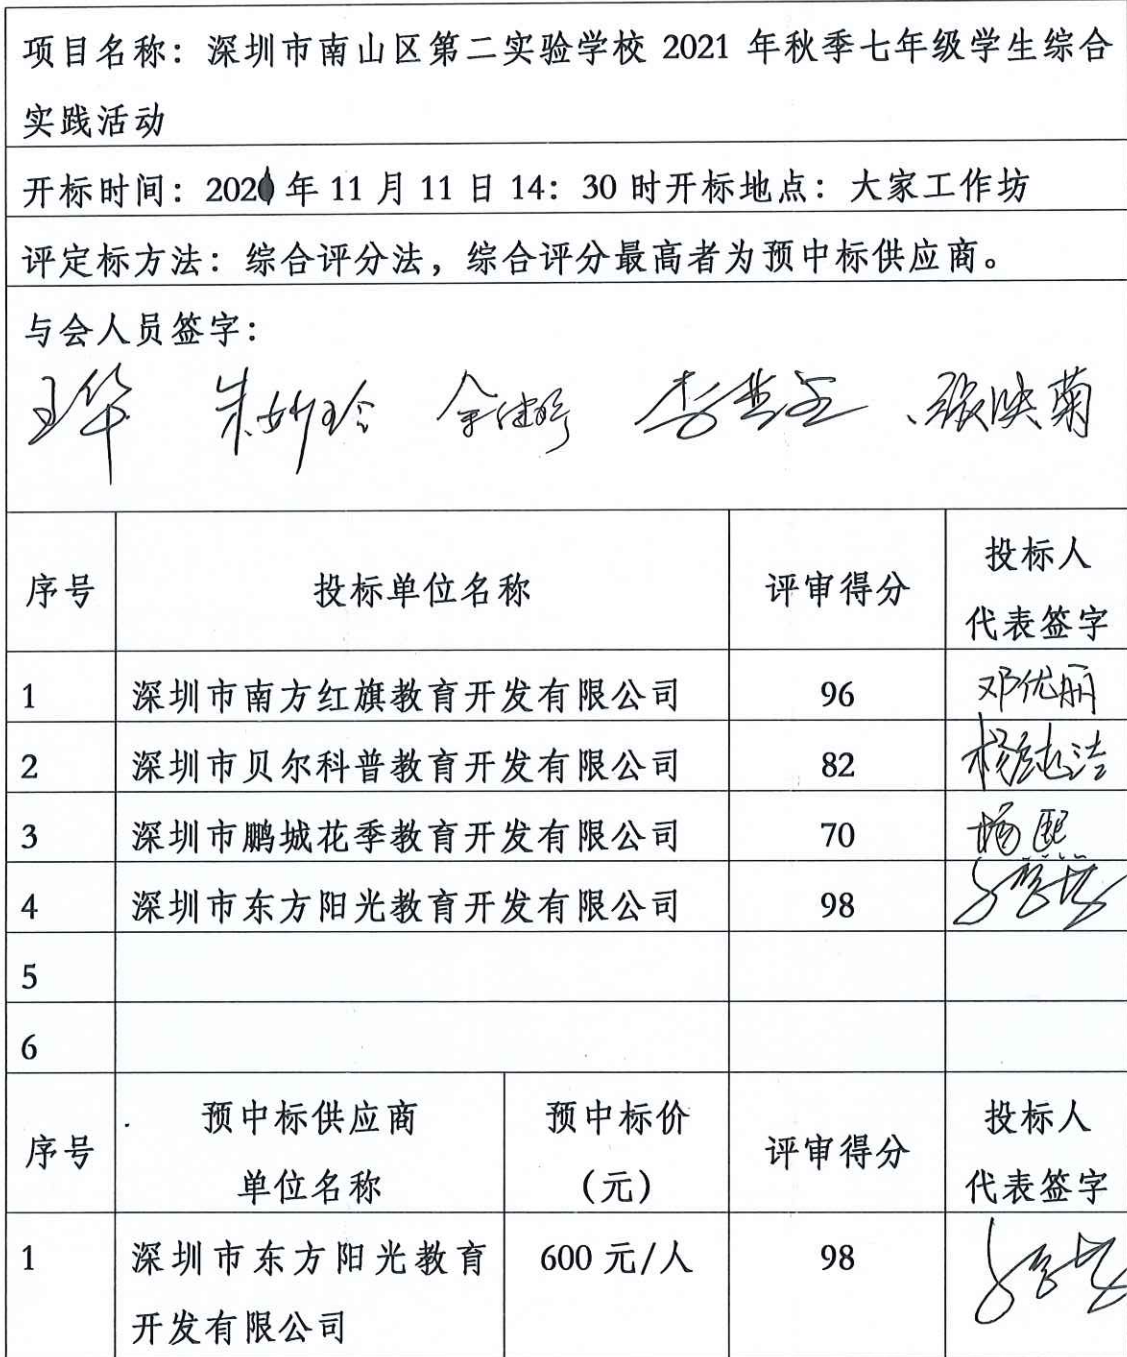 项目名称：深圳市南山区第二实验学校 2021 年秋季七年级学生综合
实践活动
开标时间：2021 年 11 月 11 日 14：30 时开标地点：大家工作坊
评定标方法：综合评分法，综合评分最高者为预中标供应商。
与会人员签字：
王华 朱妙玲 张映菊
序号 投标单位名称 评审得分 投标人
代表签字
1 深圳市南方红旗教育开发有限公司 96 邓优丽
2 深圳市贝尔科普教育开发有限公司 82
3 深圳市鹏城花季教育开发有限公司 70 杨熙
4 深圳市东方阳光教育开发有限公司 98
5
6
序号 预中标供应商 预中标价 评审得分 投标人
单位名称 （元） 代表签字
1 深圳市东方阳光教育 600 元/人 98
开发有限公司